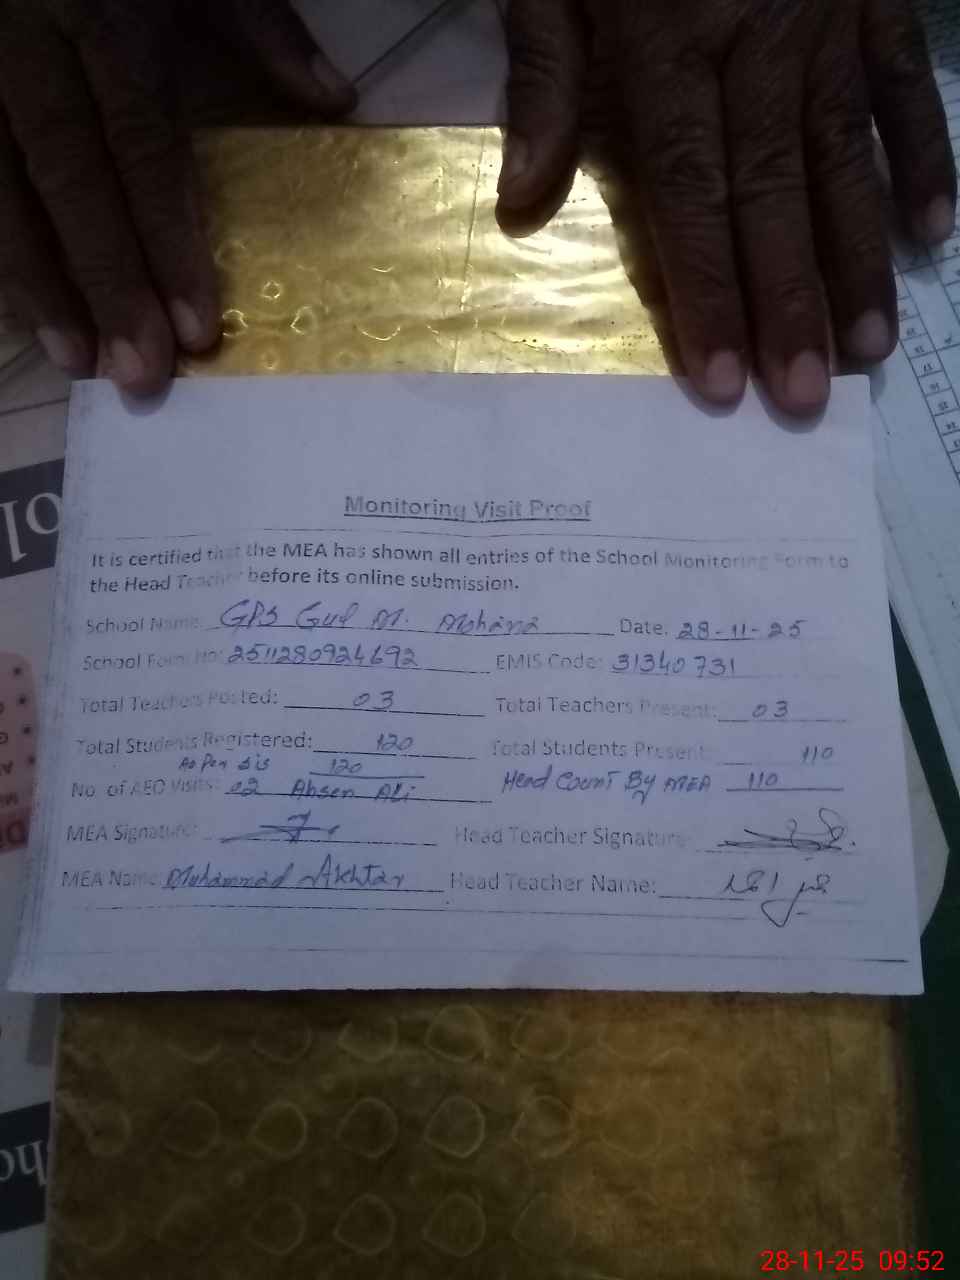 Monitoring Visit Proof
It is certified that the MEA has shown all entries of the School Monitoring Form to
the Head Teacher before its online submission.
School Name: GPS Gul M. Date: 28-11-25
School Form No: 2511280924692 EMIS Code: 31340731
Total Teachers Posted: 03 Total Teachers Present: 03
Total Students Registered: 120 Total Students Present: 110
As Per Sis 120 Head Count By MEA 110
No. of AEO Visits: 02 Ahsen Ali
MEA Signature: Head Teacher Signature:
MEA Name: Muhammad Akhtar Head Teacher Name:
28-11-25 09:52